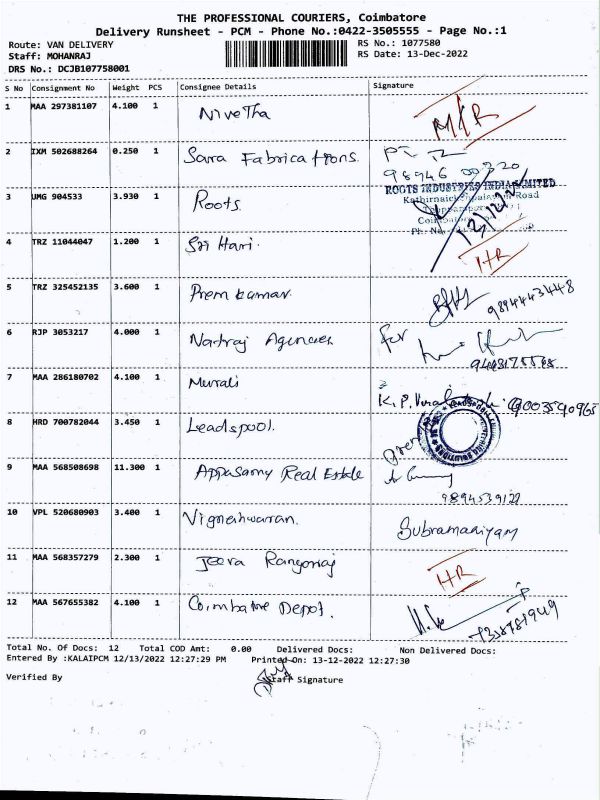 THE PROFESSIONAL COURIERS, Coimbatore
Delivery Runsheet - PCM - Phone No.:0422-3505555 - Page No.:1
Route: VAN DELIVERY
RS No.: 1077580
Staff: MOHANRAJ
RS Date: 13-Dec-2022
DRS No.: DCJB107758001
S No Consignment No Weight PCS Consignee Details Signature
1 MAA 297381107 4.100 1 Nivetha
2 IXM 502688264 0.250 1 Sara Fabrications.
98946 00320
3 UMG 904533 3.930 1 Roots
ROOTS INDUSTRIES INDIA LIMITED
Road
4 TRZ 11044047 1.200 1 Sri Hari. HR
5 TRZ 325452135 3.600 1 Prem kumar. 9894443448
6 RJP 3053217 4.000 1 Natraj Agencies for
7 MAA 286180702 4.100 1 Murali
K.P. 9003590965
8 HRD 700782044 3.450 1 Leadspool.
9 MAA 568508698 11.300 1 Appasamy Real Estate
9894539122
10 VPL 520680903 3.400 1 Vigneshwaran. Subramaniyam
11 MAA 568357279 2.300 1 Jeeva Rangaraj HR
12 MAA 567655382 4.100 1 Coimbatore Depot.
Total No. Of Docs: 12 Total COD Amt: 0.00 Delivered Docs: Non Delivered Docs:
Entered By :KALAIPCM 12/13/2022 12:27:29 PM Printed On: 13-12-2022 12:27:30
Verified By Staff Signature